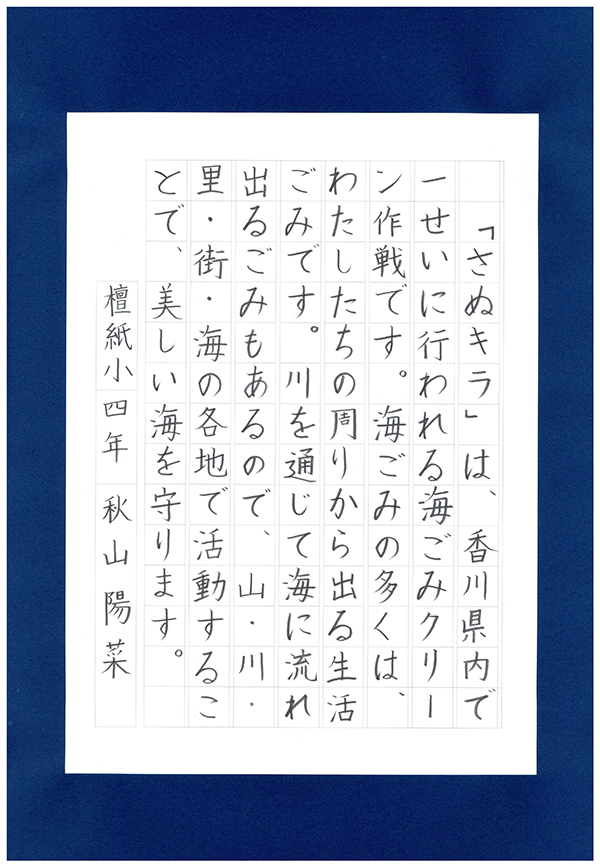 「さぬキラ」は、香川県内で
一せいに行われる海ごみクリー
ン作戦です。海ごみの多くは、
わたしたちの周りから出る生活
ごみです。川を通じて海に流れ
出るごみもあるので、山・川・
里・街・海の各地で活動するこ
とで、美しい海を守ります。
檀紙小四年 秋山陽菜